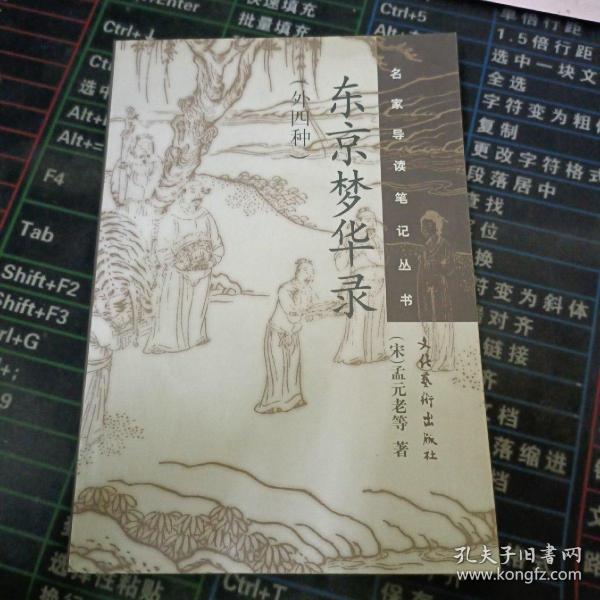 名家导读笔记丛书
东京梦华录
(外四种)
(宋)孟元老等 著
文化艺术出版社
Ctrl+Enter
快速填充
批量填充
Ctrl+J
Alt+=
F4
Tab
Shift+F2
Shift+F3
Ctrl+G
Ctrl+;
选择性粘贴
Ctrl+T
Ctrl+5
单倍行距
1.5倍行距
选中一块文
全选
字符变为粗体
复制
更改字符格式
段落居中
查找
符变为斜体
对齐
链接
落缩进
保存
孔夫子旧书网
www.kongfz.com